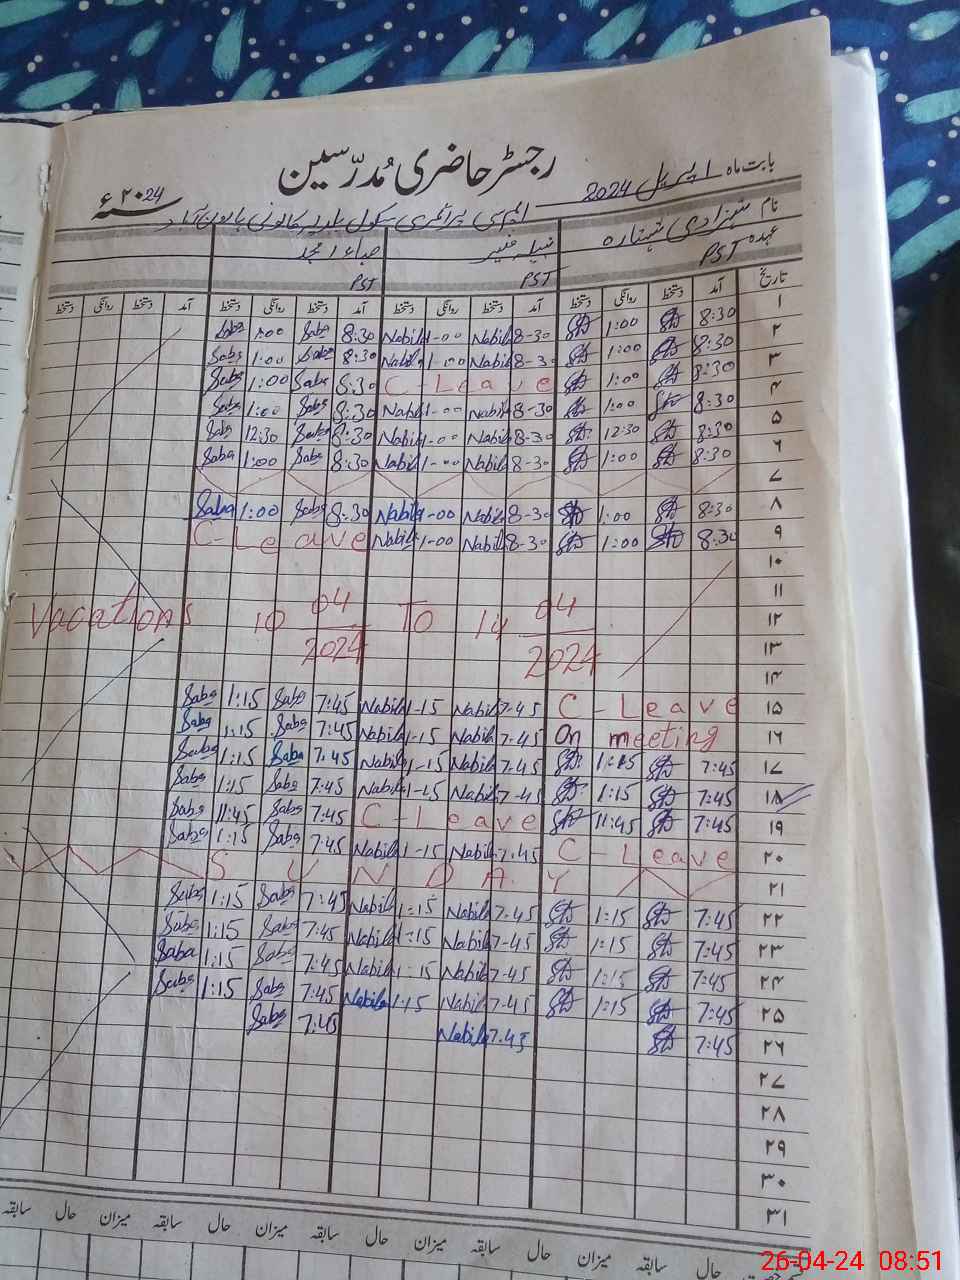 رجسٹر حاضری مُدرّسین
بابت ماہ اپریل 2024
سنہ ۲۰24ء
نام شہزادی
نبیلہ
صباء امجد
عہدہ PST PST PST
تاریخ آمد دستخط روانگی دستخط آمد دستخط روانگی دستخط آمد دستخط روانگی دستخط آمد دستخط روانگی دستخط
۱ 8:30 1:00 8-30 Nabila 1-00 Nabila 8:30 Saba 1:00 Saba
۲ 8:30 1:00 8-30 Nabila 1-00 Nabila 8:30 Saba 1:00 Saba
۳ 8:30 1:00 C-Leave 8:30 Saba 1:00 Saba
۴ 8:30 1:00 8-30 Nabila 1-00 Nabila 8:30 Saba 1:00 Saba
۵ 8:30 12:30 8-30 Nabila 1-00 Nabila 8:30 Saba 12:30 Saba
۶ 8:30 1:00 8-30 Nabila 1-00 Nabila 8:30 Saba 1:00 Saba
۷
۸ 8:30 1:00 8-30 Nabila 1-00 Nabila 8:30 Saba 1:00 Saba
۹ 8:30 1:00 8-30 Nabila 1-00 Nabila C-Leave
۱۰
۱۱
۱۲ Vacations 10 04/2024 To 14 04/2024
۱۳
۱۴
۱۵ C-Leave 7-45 Nabila 1-15 Nabila 7:45 Saba 1:15 Saba
۱۶ On meeting 7-45 Nabila 1-15 Nabila 7:45 Saba 1:15 Saba
۱۷ 7:45 1:15 7-45 Nabila 1-15 Nabila 7:45 Saba 1:15 Saba
۱۸ 7:45 1:15 7-45 Nabila 1-15 Nabila 7:45 Saba 1:15 Saba
۱۹ 7:45 11:45 C-Leave 7:45 Saba 11:45 Saba
۲۰ C-Leave 7-45 Nabila 1-15 Nabila 7:45 Saba 1:15 Saba
۲۱ SUNDAY
۲۲ 7:45 1:15 7-45 Nabila 1:15 Nabila 7:45 Saba 1:15 Saba
۲۳ 7:45 1:15 7-45 Nabila 1:15 Nabila 7:45 Saba 1:15 Saba
۲۴ 7:45 1:15 7-45 Nabila 1:15 Nabila 7:45 Saba 1:15 Saba
۲۵ 7:45 1:15 7-45 Nabila 1:15 Nabila 7:45 Saba 1:15 Saba
۲۶ 7:45 7-45 Nabila 7:45 Saba
۲۷
۲۸
۲۹
۳۰
۳۱
سابقہ حال میزان سابقہ حال میزان سابقہ حال میزان سابقہ حال
26-04-24 08:51